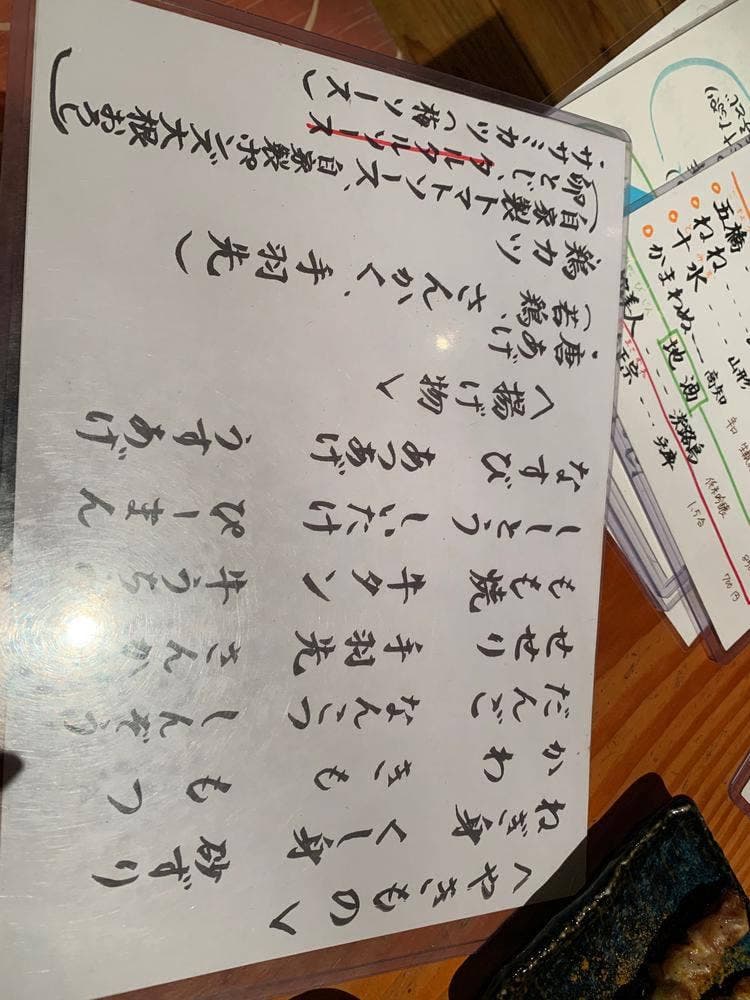 〈やきもの〉
ねぎ身 くし身 砂ずり
かわ きも もつ
だんご なんこつ しんぞう
せせり 手羽先 さんか
もも焼 牛タン 牛うち
ししとう しいたけ ぴーまん
なすび あつあげ うすあげ
〈揚げ物〉
・唐あげ
(若鶏、さんかく、手羽先)
鶏カツ
(自家製トマトソース、自家製ポンズ大根おろし
卵とじ、タルタルソース)
・ササミカツ(梅ソース)
地酒
五橋
ねね
十水 山形
かまわぬ 高知
淡路島
辛口
1.5合
700円